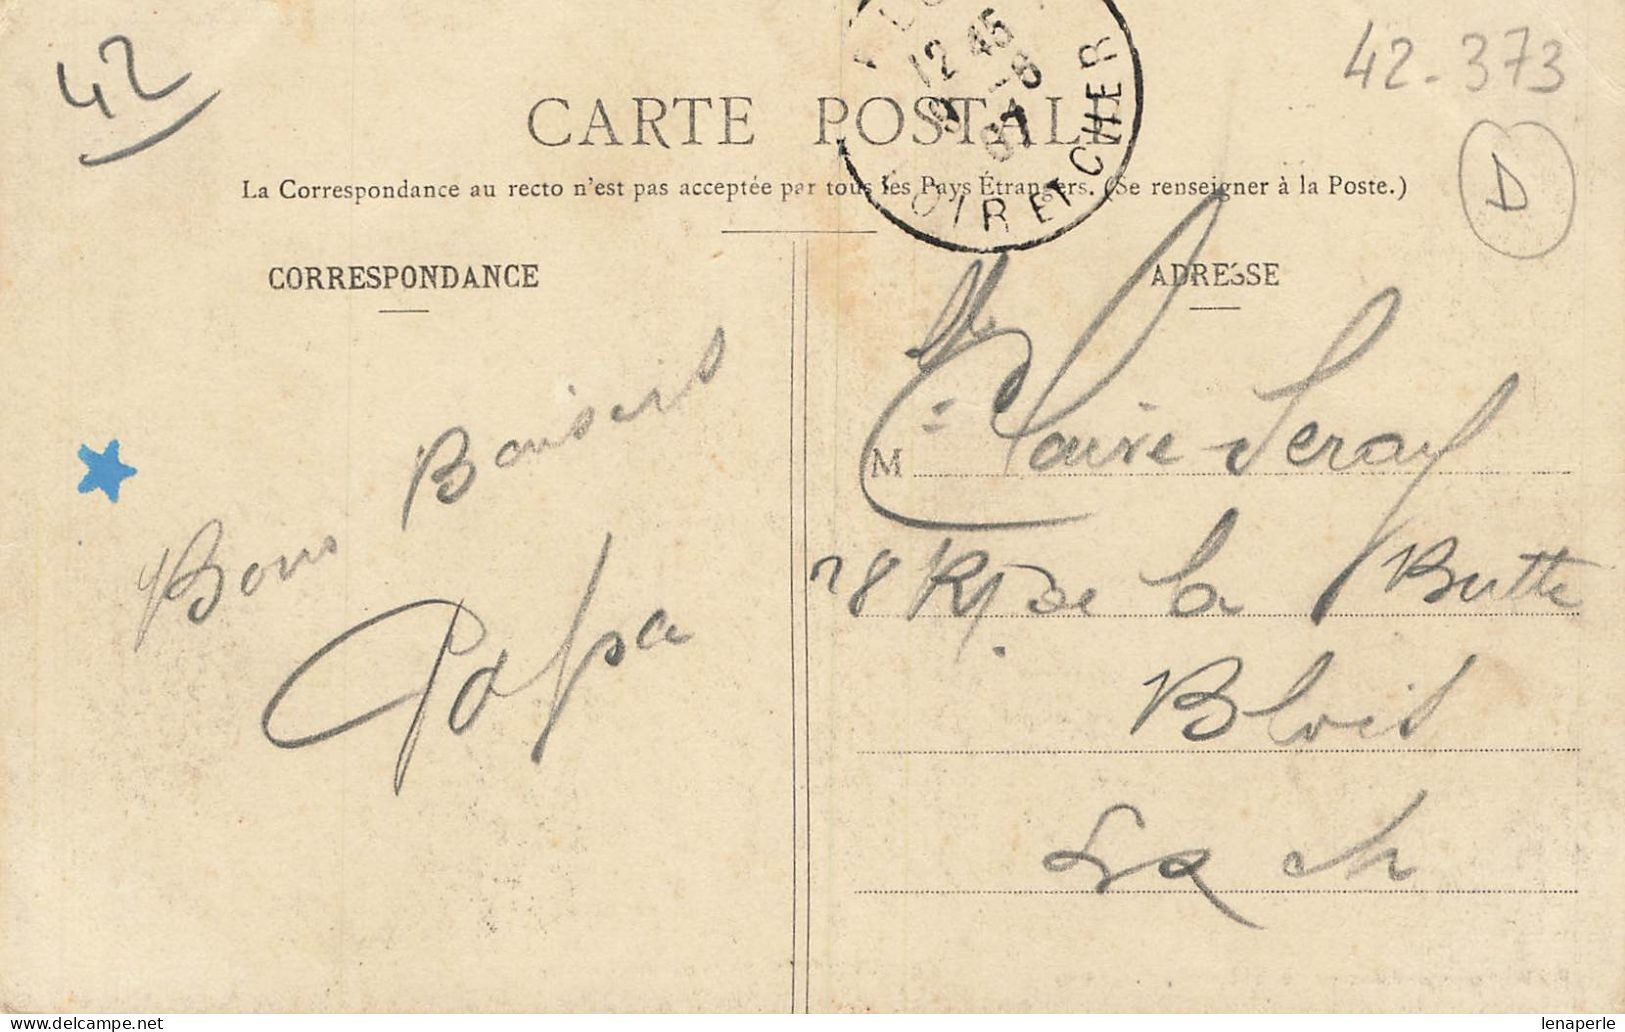 42
42-373
D
12 45
9 -8
07
LOIR ET CHER
CARTE POSTALE
La Correspondance au recto n'est pas acceptée par tous les Pays Étrangers. (Se renseigner à la Poste.)
CORRESPONDANCE
ADRESSE
Bons Baisers
Papa
M
Claire
de la Butte
Blois
lenaperle